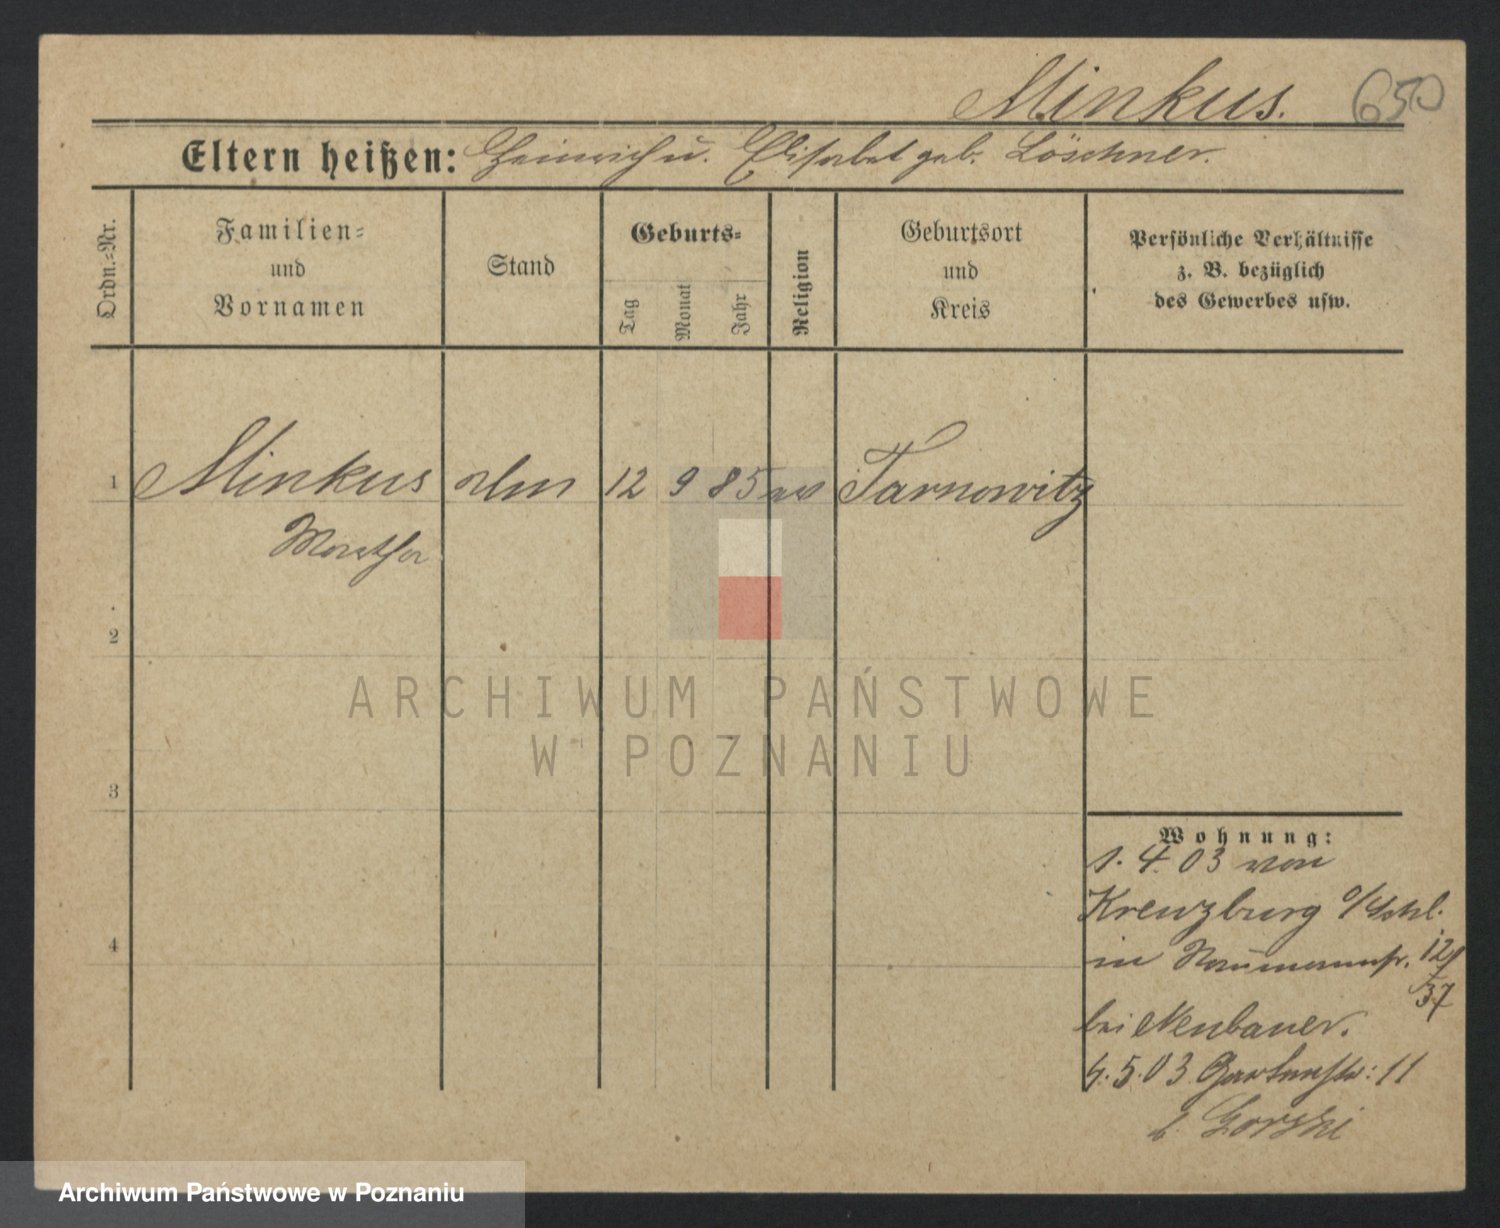 Minkus. 650
Eltern heißen: Heinrich u. Elisabet geb. Löschner.
Ordn.-Nr.
Familien-
und
Vornamen
Stand
Geburts-
Tag
Monat
Jahr
Religion
Geburtsort
und
Kreis
Persönliche Verhältnisse
z. B. bezüglich
des Gewerbes usw.
1 Minkus 12 9 85 ev Tarnowitz
Martha
2
3
4
ARCHIWUM PAŃSTWOWE
W POZNANIU
Wohnung:
1. 4. 03 von
Kreuzburg o/schl.
in Naumannstr. 12/
37
bei Neubauer.
4. 5. 03 Gartenstr: 11
b. Gorski
Archiwum Państwowe w Poznaniu